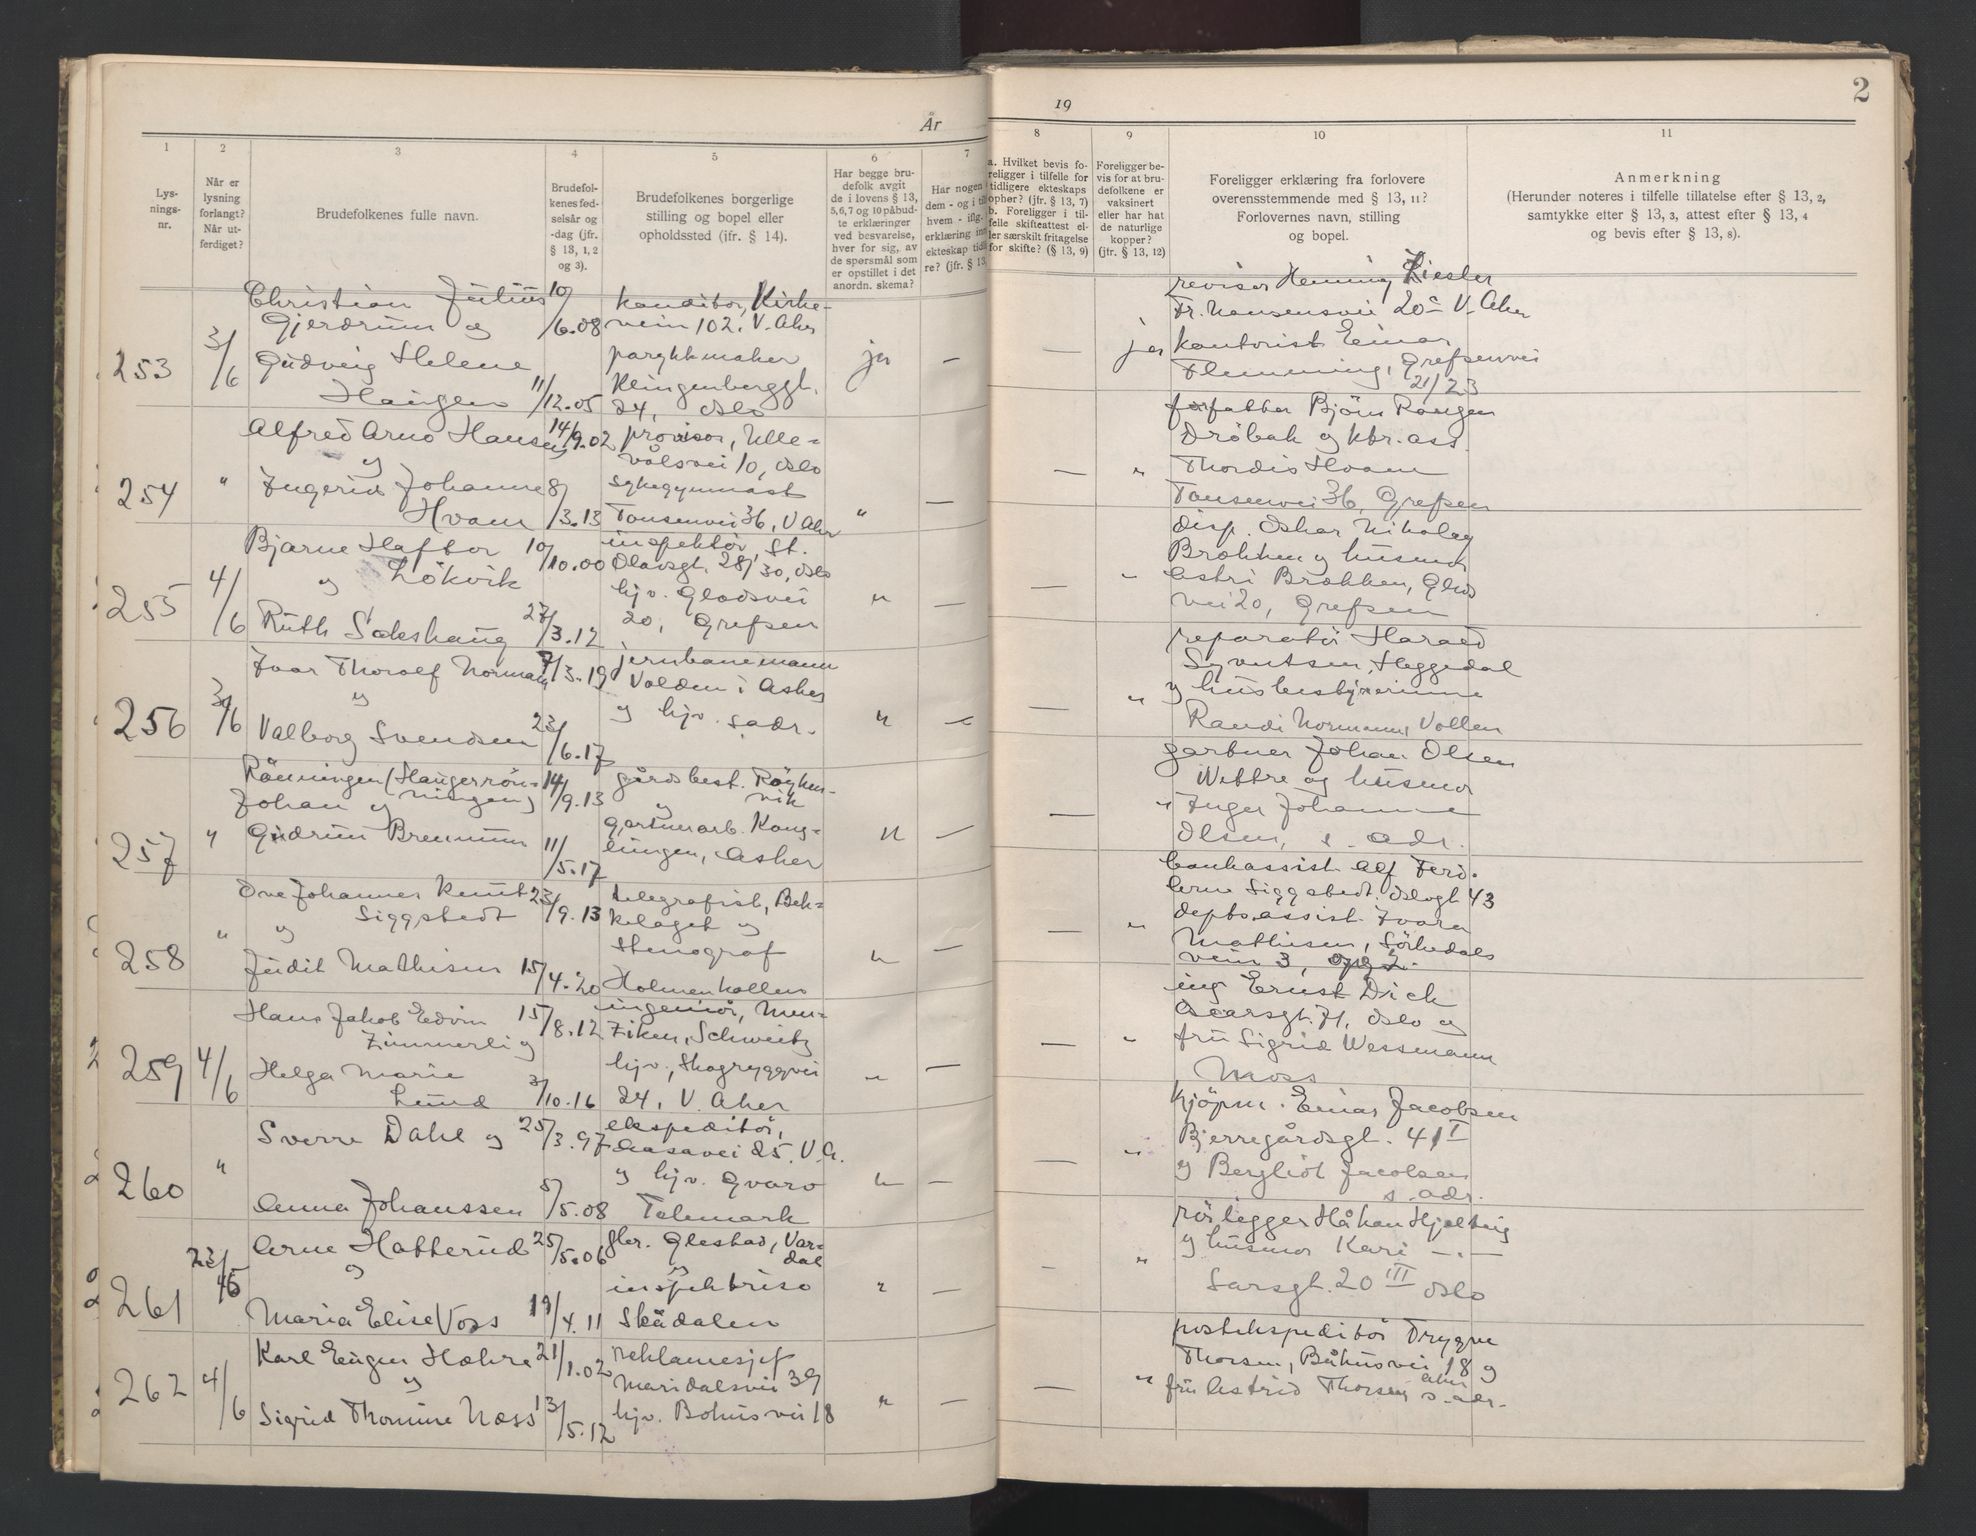 År
19
2
1
2
3
4
5
6
7
8
9
10
11
Lys-
nings-
nr.
Når er
lysning
forlangt?
Når ut-
ferdiget?
Brudefolkenes fulle navn.
Brudefol-
kenes fød-
selsår og
-dag (jfr.
§ 13, 1, 2
og 3).
Brudefolkenes borgerlige
stilling og bopel eller
opholdssted (jfr. § 14).
Har begge bru-
defolk avgit
de i lovens § 13,
5,6,7 og 10 påbud-
te erklæringer
ved besvarelse,
hver for sig, av
de spørsmål som
er opstillet i det
anordn. skema?
Har nogen
dem - og i til
hvem - iflg.
erklæring inn
ekteskap tidli
re? (jfr. § 13,
a. Hvilket bevis fo-
religger i tilfelle for
tidligere ekteskaps
ophør? (jfr. § 13, 7)
b. Foreligger i til-
felle skifteattest el-
ler særskilt fritagelse
for skifte? (§ 13, 9)
Foreligger be-
vis for at bru-
defolkene er
vaksinert
eller har hat
de naturlige
kopper?
(jfr. § 13, 12)
Foreligger erklæring fra forlovere
overensstemmende med § 13, 11?
Forlovernes navn, stilling
og bopel.
Anmerkning
(Herunder noteres i tilfelle tillatelse efter § 13, 2,
samtykke efter § 13, 3, attest efter § 13, 4
og bevis efter § 13, 8).
253
3/6
Christian Julius
Gjerdrum og
Gudveig Helene
Haugen
10/6.08
11/12.05
konditor, Kirke-
vein 102, V. Aker
parykkmaker
Klingenberggt.
24, Oslo
ja
—
—
ja
revisor Henning Ziesler
Fr. Nansensvei 20a V. Aker
kontorist Einar
Flemming, Grefsenvei
21/23
254
"
Alfred Arno Hansen
og
Ingerid Johanne
Hvam
14/9.02
8/3.13
provisor, Ulle-
vålsvei 10, Oslo
sykegymnast
Tonsenvei 36, V Aker
"
—
—
"
forfatter Bjørn Rongen
Drøbak og ktr. ass
Thordis Hvam
Tonsenvei 36, Grefsen
255
4/6
Bjarne Haftor
og Løkvik
Ruth Sakshaug
10/10.00
27/3.12
inspektør, St.
Olavsgt. 28/30, Oslo
hjv. Gladsvei
20, Grefsen
"
—
—
"
disp. Oskar Nikolay
Brækken og husmor
Astri Brækken, Glads
vei 20, Grefsen
256
3/6
Ivar Thorolf Normann
og
Valborg Svendsen
7/3.19
23/6.17
jernbanemann
Volden i Asker
og hjv. s. adr.
"
—
—
"
reparatør Harald
Syvertsen, Heggedal
og husbestyrerinne
Randi Normann, Vollen
257
"
Rønningen (Haugerrøn-
Johan og ningen)
Gudrun Brennum
14/9.13
11/5.17
gårdsbest. Røyken-
og vik
gartnerarb. Kong-
lungen, Asker
"
—
—
"
gartner Johan Olsen
Wettre og husmor
Inger Johanne
Olsen, s. adr.
258
"
Ove Johannes Knut
og Siggstedt
Judit Mathisen
23/9.13
15/4.20
telegrafist, Bek-
kelaget og
stenograf
Holmenkollen
"
—
—
"
bankassist. Alf Ferd.
Arne Siggstedt, Oslogt 43
depts.assist. Ivara
Mathisen, Sørkedals
vein 3, opg 2.
259
4/6
Hans Jakob Edvin
Zimmerli og
Helga Marie
Lund
15/8.12
3/10.16
ingeniør, Men-
ziken, Schweitz
hjv., Skogryggvei
24, V. Aker
"
—
—
"
ing Ernst Dick
Oscarsgt. 71, Oslo og
fru Sigrid Wessmann
Moss
260
"
Sverre Dahl og
Anna Johanssen
25/3.97
5/5.08
ekspeditør,
Aasavei 25. V.A.
og hjv. Gvarv
Telemark
"
—
—
"
kjøpm. Einar Jacobsen
Bjerregårdsgt. 41 I
og Bergliot Jacobsen
s. adr.
261
23/5
Arne Hatterud
og
Maria Elise Voss
25/5.06
19/4.11
Glestad, Var-
og dal
inspektrise
Skådalen
"
—
—
"
rørlegger Håkan Hjelteig
og husmor Kari — " —
Sarsgt. 20 III Oslo
262
4/6
Karl Eugen Hæhre
og
Sigrid Thomine Næss
21/1.02
13/5.12
reklamesjef
Maridalsvei 39
hjv. Bohusvei 18
"
—
—
"
postekspeditør Trygve
Thorsen, Båhusvei 18 og
Aker
fru Astrid Thorsen s. adr.